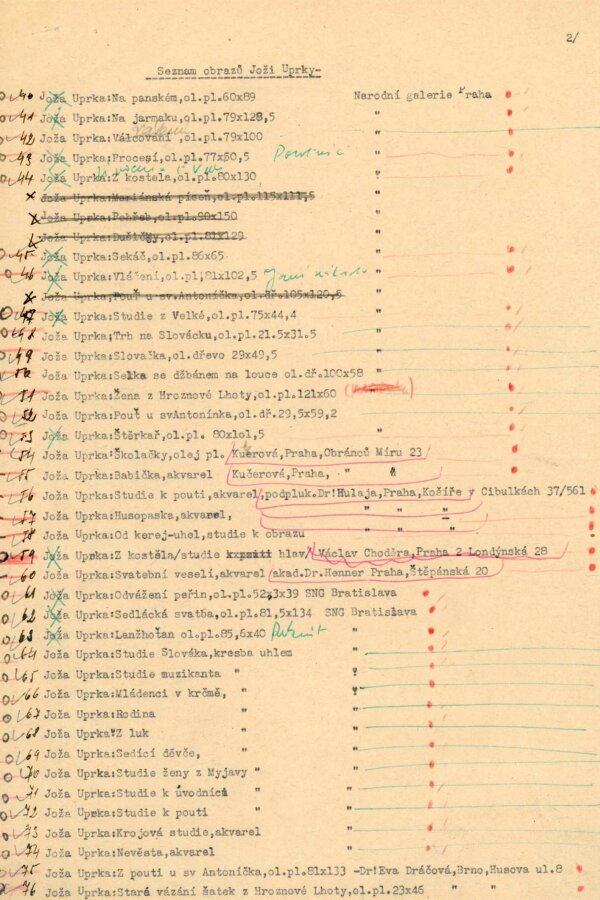 2/
Seznam obrazů Joži Uprky-
40 Joža Uprka:Na panském,ol.pl.60x89 Narodní galerie Praha
41 Joža Uprka:Na jarmaku,ol.pl.79x128,5 "
42 Joža Uprka:Válcování ,ol.pl.79x100 "
43 Joža Uprka:Procesí,ol.pl.77x60,5 "
44 Joža Uprka:Z kostela,ol.pl.80x130 "
x Joža Uprka:Mariánská píseň,ol.pl.115x111,5 "
x Joža Uprka:Pohřeb,ol.pl.90x150 "
x Joža Uprka:Dušičky,ol.pl.81x129 "
45 Joža Uprka:Sekáč,ol.pl.86x65 "
46 Joža Uprka:Vláčení,ol.pl,81x102,5 "
x Joža Uprka,Pouť u sv.Antoníčka,ol.dř.105x120,5 "
47 Joža Uprka:Studie z Velké,ol.pl.75x44,4 "
48 Joža Uprka;Trh na Slovácku,ol.pl.21.5x31.5 "
49 Joža Uprka:Slovačka,ol.dřevo 29x49,5 "
50 Joža Uprka:Selka se džbánem na louce ol.dř.100x58 "
51 Joža Uprka:žena z Hroznové Lhoty,ol.pl.121x60
52 Joža Uprka:Pouť u svAntonínka,ol.dř.29,5x59,2 "
53 Joža Uprka:Štěrkař,ol.pl. 80x101,5 "
54 Joža Uprka:Školačky,olej pl. Kučerová,Praha,Obránců Míru 23
55 Joža Uprka:Babička,akvarel Kučerová,Praha, " "
56 Joža Uprka:Studie k pouti,akvarel,podpluk.Dr!Hulaja,Praha,Košíře v Cibulkách 37/561
57 Joža Uprka:Husopaska,akvarel, " " "
58 Joža Uprka:Od kerej-uhel,studie k obrazu " " "
59 Joža Uprka:Z kostěla/studie hlav/ Václav Choděra,Praha 2 Londýnská 28
60 Joža Uprka:Svatební veselí,akvarel akad.Dr.Henner Praha,Štěpánská 20
61 Joža Uprka:Odvážení peřin,ol.pl.52,3x39 SNG Bratislava
62 Joža Uprka:Sedlácká svatba,ol.pl.81,5x134 SNG Bratislava
63 Joža Uprka:Lanžhotan ol.pl.85,6x40 Rekrut "
64 Joža Uprka:Studie Slováka,kresba uhlem "
65 Joža Uprka:Studie muzikanta " "
66 Joža Uprka:Mládenci v krčmě, " "
67 Joža Uprka:Rodina " "
68 Joža Uprka:Z luk " "
69 Joža Uprka:Sedící děvče, " "
70 Joža Uprka:Studie ženy z Myjavy " "
71 Joža Uprka:Studie k úvodniců " "
72 Joža Uprka:Studie k pouti " "
73 Joža Uprka:Krojová studie,akvarel "
74 Joža Uprka:Nevěsta,akvarel "
75 Joža Uprka:Z pouti u sv Antoníčka,ol.pl.81x133 -Dr!Eva Dráčová,Brno,Husova ul.8
76 Joža Uprka:Stará vázání šatek z Hroznové Lhoty,ol.pl.23x46 " "